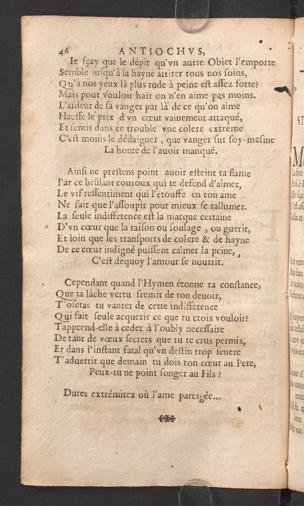 46 ANTIOCHVS,
Ie sçay que le dépit qu'vn autre Obiet l'emporte
Semble iusqu'à la hayne attirer tous nos soins,
Qu'à nos yeux la plus rude à peine est assez forte?
Mais pour vouloir haïr on n'en aime pas moins.
L'ardeur de sa vanger par là de ce qu'on aime
Hausse le prix d'vn cœur vainement attaqué,
Et sentir dans ce trouble vne colere extréme
C'est moins le dédaigner, que vanger sur soy-mesme
La honte de l'auoir manqué.
Ainsi ne prestens point auoir esteint ta flame
Par ce brûlant couroux qui te defend d'aimer,
Le vif ressentiment qui l'étouffe en ton ame
Ne fait que l'assoupir pour mieux se rallumer.
La seule indifference est la marque certaine
D'vn cœur que la raison ou soulage, ou guerit,
Et loin que les transports de colere & de hayne
De ce cœur indigné puissent calmer la peine,
C'est dequoy l'amour se nourrit.
Cependant quand l'Hymen étonne ta constance,
Que ta lâche vertu fremit de ton deuoir,
T'oseras tu vanter de cette indifference
Qui fait seule acquerir ce que tu crois vouloir?
T'apprend-elle à ceder à l'oubly necessaire
De tant de vœux secrets que tu te crus permis,
Et dans l'instant fatal qu'vn destin trop seuere
T'aduertit que demain tu dois ton cœur au Pere,
Peux-tu ne point songer au Fils?
Dures extrémitez où l'ame partagée...